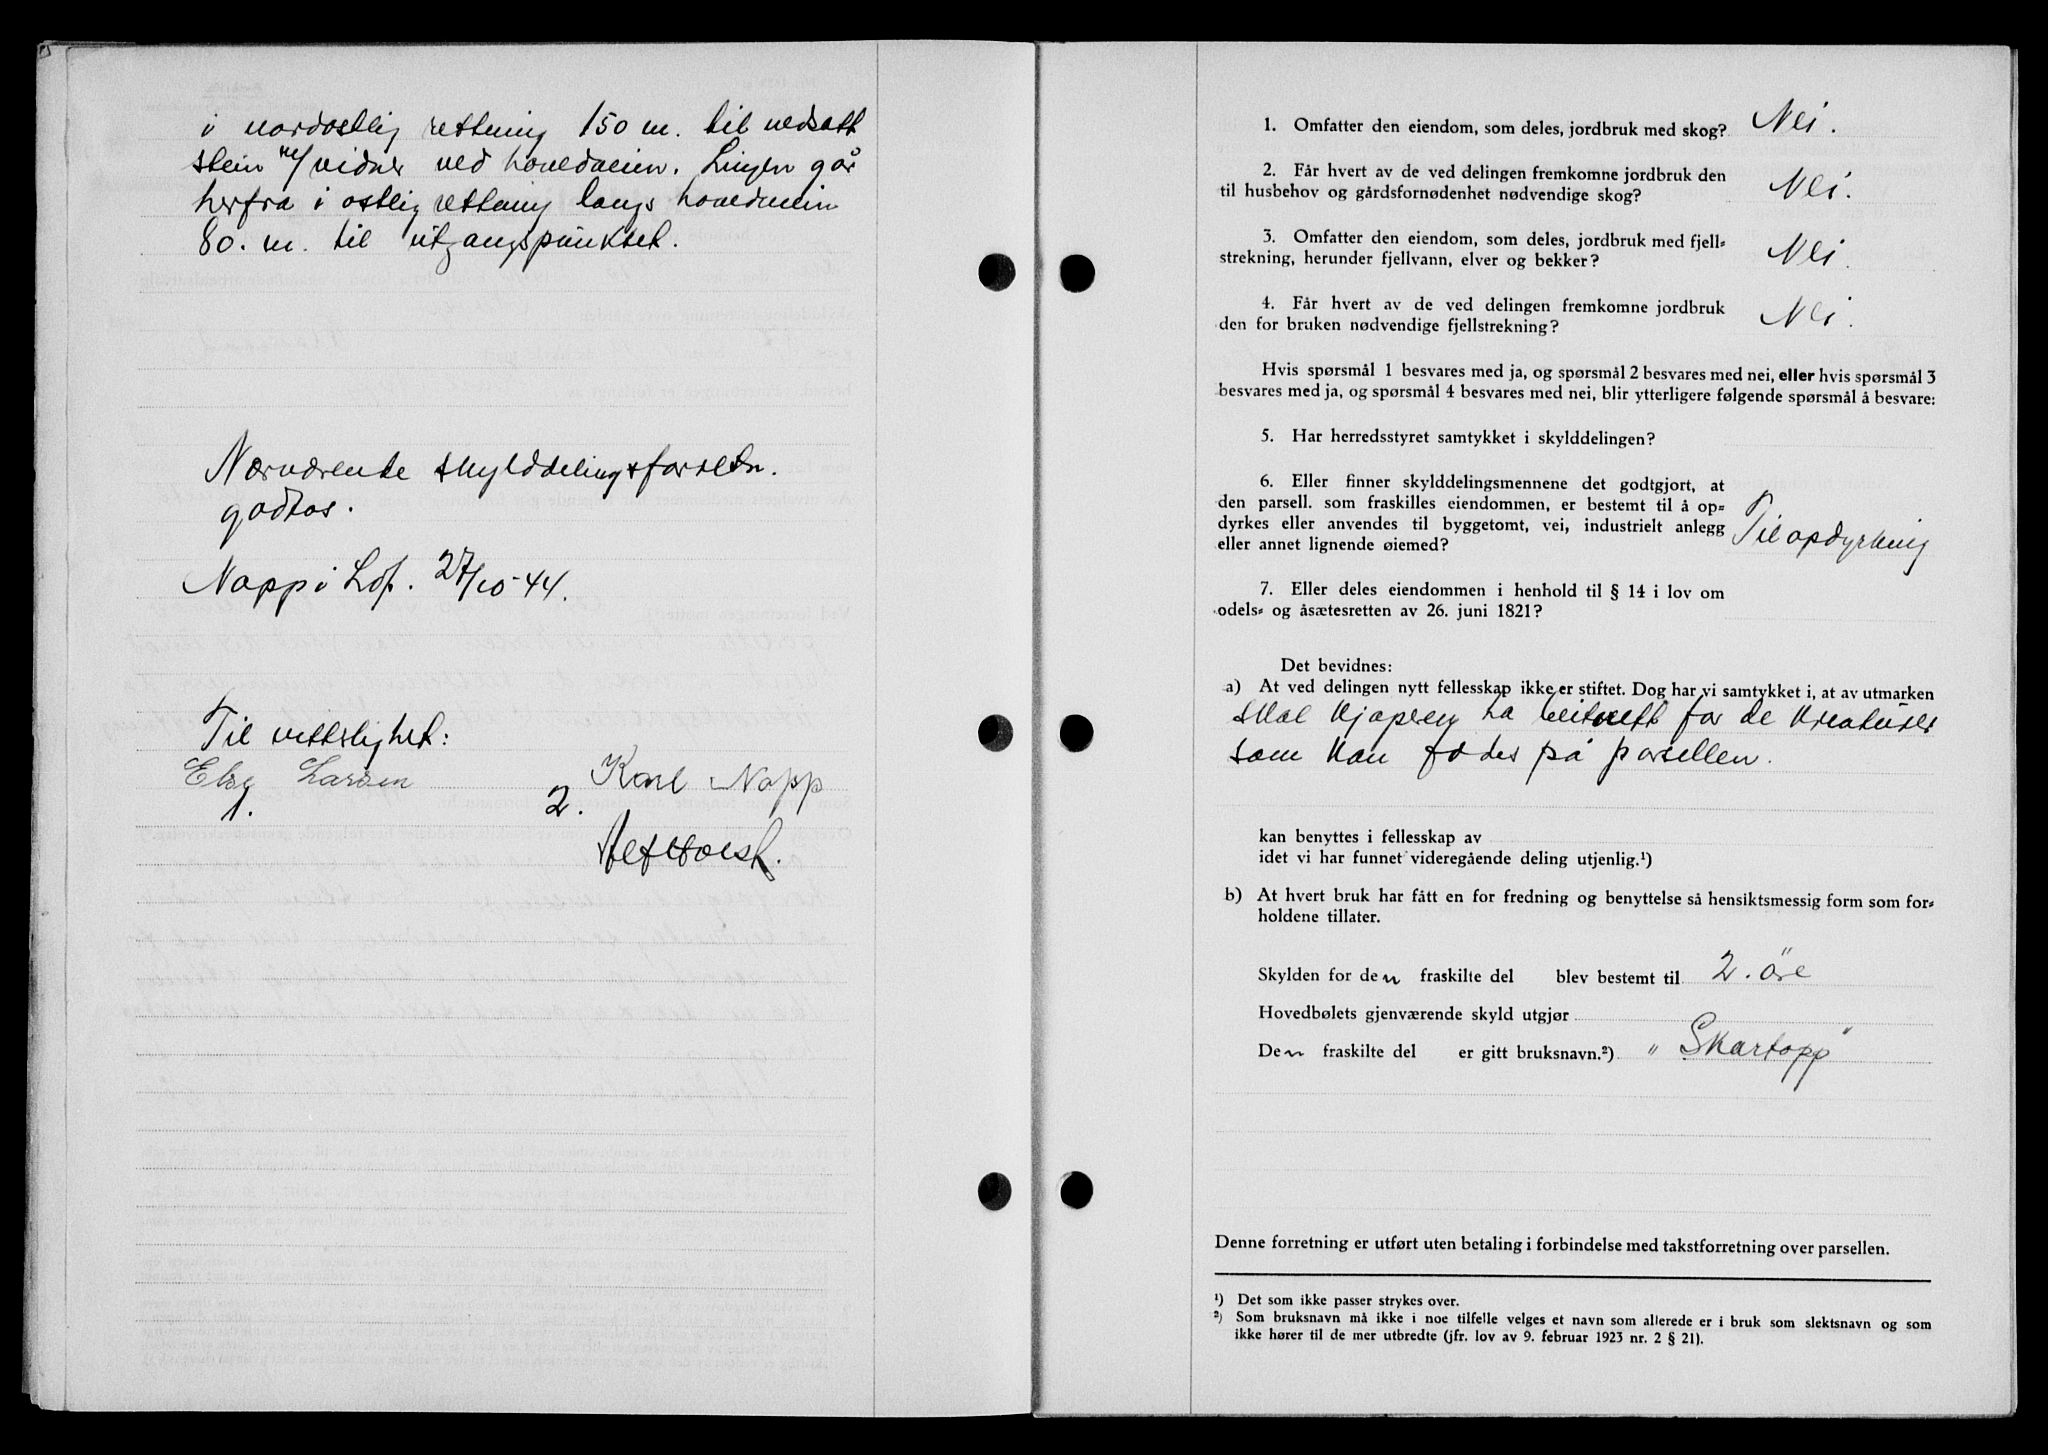 i nordostlig rettning 150 m. til nedsatt
stein m/ vidner ved hovedveien. Linjen går
herfra i ostlig rettning langs hovedveien
80. m. til utgangspunktet.
Nærværende skylddelingsforretn.
godtas.
Napp i Lof. 27/10-44.
Til vitterlighet:
Elsy Larsen
1.
2.
Karl Napp
1. Omfatter den eiendom, som deles, jordbruk med skog? Nei.
2. Får hvert av de ved delingen fremkomne jordbruk den
til husbehov og gårdsfornødenhet nødvendige skog? Nei.
3. Omfatter den eiendom, som deles, jordbruk med fjell=
strekning, herunder fjellvann, elver og bekker? Nei.
4. Får hvert av de ved delingen fremkomne jordbruk
den for bruken nødvendige fjellstrekning? Nei.
Hvis spørsmål 1 besvares med ja, og spørsmål 2 besvares med nei, eller hvis spørsmål 3
besvares med ja, og spørsmål 4 besvares med nei, blir ytterligere følgende spørsmål å besvare:
5. Har herredsstyret samtykket i skylddelingen?
6. Eller finner skylddelingsmennene det godtgjort, at
den parsell. som fraskilles eiendommen, er bestemt til å op=
dyrkes eller anvendes til byggetomt, vei, industrielt anlegg
eller annet lignende øiemed? Til opdyrkning
7. Eller deles eiendommen i henhold til § 14 i lov om
odels= og åsætesretten av 26. juni 1821?
Det bevidnes:
a) At ved delingen nytt fellesskap ikke er stiftet. Dog har vi samtykket i, at av utmarken
skal kjøperen ha beitrett for de kreaturer
som kan fødes på parsellen.
kan benyttes i fellesskap av
idet vi har funnet videregående deling utjenlig.¹)
b) At hvert bruk har fått en for fredning og benyttelse så hensiktsmessig form som for=
holdene tillater.
Skylden for den fraskilte del blev bestemt til 2. öre
Hovedbølets gjenværende skyld utgjør
Den fraskilte del er gitt bruksnavn.²) "Skartopp"
Denne forretning er utført uten betaling i forbindelse med takstforretning over parsellen.
¹) Det som ikke passer strykes over.
²) Som bruksnavn må ikke i noe tilfelle velges et navn som allerede er i bruk som slektsnavn og som
ikke hører til de mer utbredte (jfr. lov av 9. februar 1923 nr. 2 § 21).